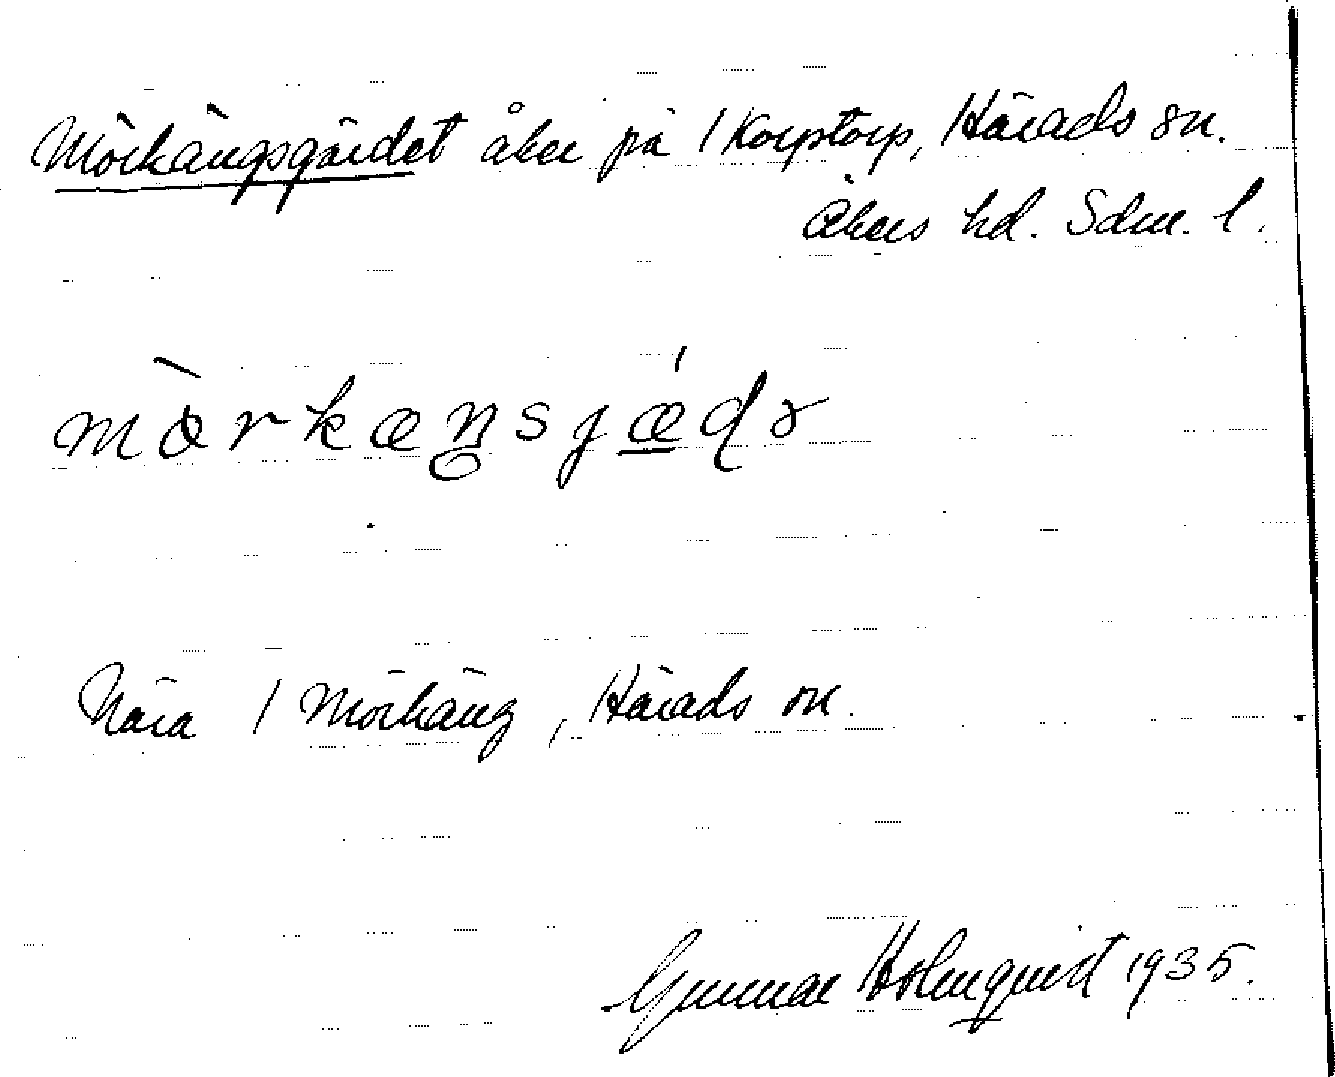 Mörkängsgärdet åker på / Korptorp, Härads sn.
Åkers hd. Sdm. l.
mòrkæŋsjǽdə
Nära / Mörkäng, Härads sn.
Gunnar Holmquist 1935.